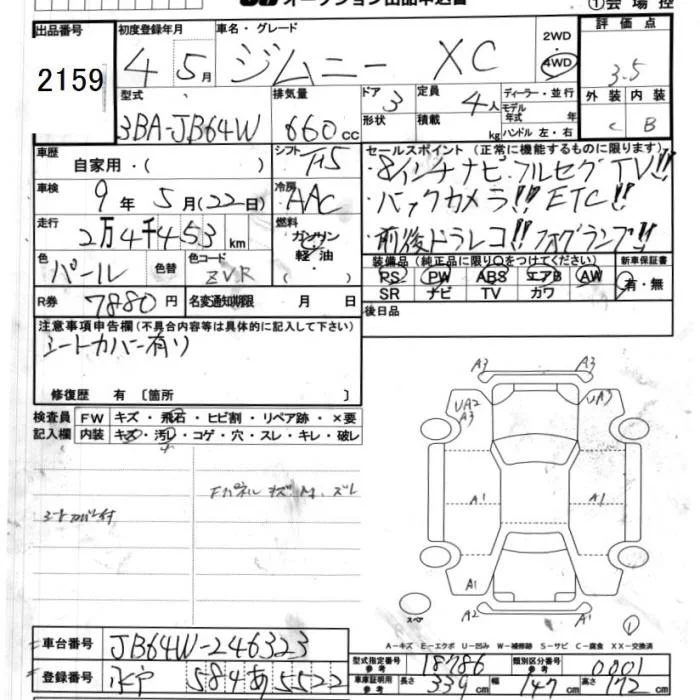 オークション出品申込書
①会場控
出品番号 初度登録年月 車名・グレード 2WD 評価点
2159 4 5月 ジムニー XC 4WD 3.5
型式 排気量 ドア 3 定員 4人 ディーラー・並行 外装 内装
3BA-JB64W 660cc 形状 積載 kg モデル年式 年 C B
ハンドル 左・右
車歴 自家用・( ) シフト
セールスポイント(正常に機能するものに限ります)
・8インチナビ・フルセグTV!!
車検 9年5月(22日) 冷房 AAC
・バックカメラ!! ETC!!
走行 2万4千453km 燃料 ガソリン・軽油・( )
・前後ドラレコ!! フォグランプ!!
色 パール 色替 色コード ZVR
装備品(純正品に限り○をつけてください) 新車保証書
PS PW ABS エアB AW 有・無
SR ナビ TV カワ
R券 7880円 名変通知期限 月 日
後日品
注意事項申告欄(不具合内容等は具体的に記入して下さい)
シートカバー有り
修復歴 有〔箇所 〕
検査員記入欄 FW キズ・飛石・ヒビ割・リペア跡・×要
内装 キズ・汚レ・コゲ・穴・スレ・キレ・破レ
Fパネル キズ
シートカバー付
A3 A3
UA2 A3 UA3
A1 A1
A1 A1
A2 A1
スペア
①
A-キズ E-エクボ U-凹み W-補修跡 S-サビ C-腐食 XX-交換済
車台番号 JB64W-246323
登録番号 水戸 584 あ 5522
型式指定番号 参考 18786 類別区分番号 参考 0001
車庫証明用 参考 長さ 339cm 幅 147cm 高さ 172cm